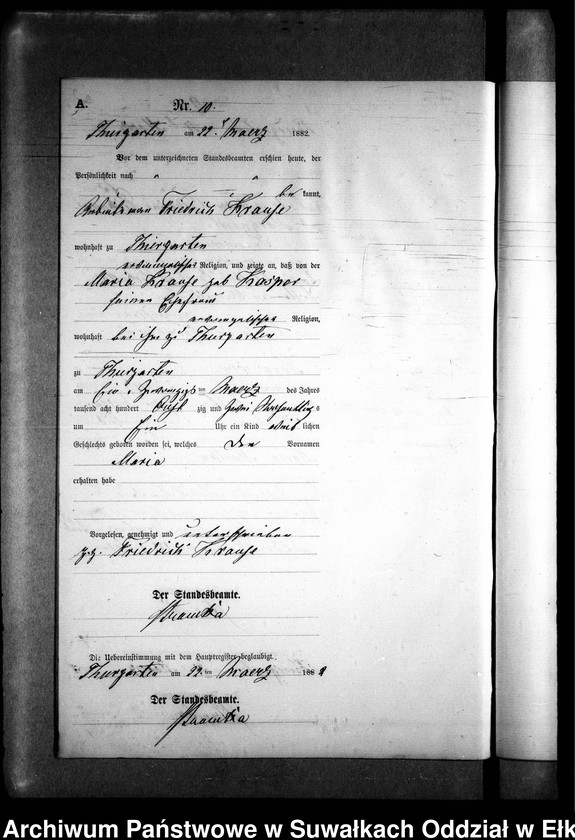 A.
Nr. 10.
Thiergarten am 22ᵗ Maerz 1882.
Vor dem unterzeichneten Standesbeamten erschien heute, der
Persönlichkeit nach
be kannt,
Friedrich Krause
wohnhaft zu Thiergarten
evangelischer Religion, und zeigte an, daß von der
Maria Krause geb Kasper
seiner Ehefrau
evangelischer Religion,
wohnhaft bei ihm zu Thiergarten
zu Thiergarten
am Ein u Zwanzigs ten Maerz des Jahres
tausend acht hundert Acht zig und zwei
um Ein Uhr ein Kind weib lichen
Geschlechts geboren worden sei, welches den Vornamen
Maria
erhalten habe
Vorgelesen, genehmigt und unterschrieben
gez. Friedrich Krause
Der Standesbeamte.
Die Uebereinstimmung mit dem Hauptregister beglaubigt.
Thiergarten am 22 ten Maerz 188 2
Der Standesbeamte.
Archiwum Państwowe w Suwałkach Oddział w Ełk